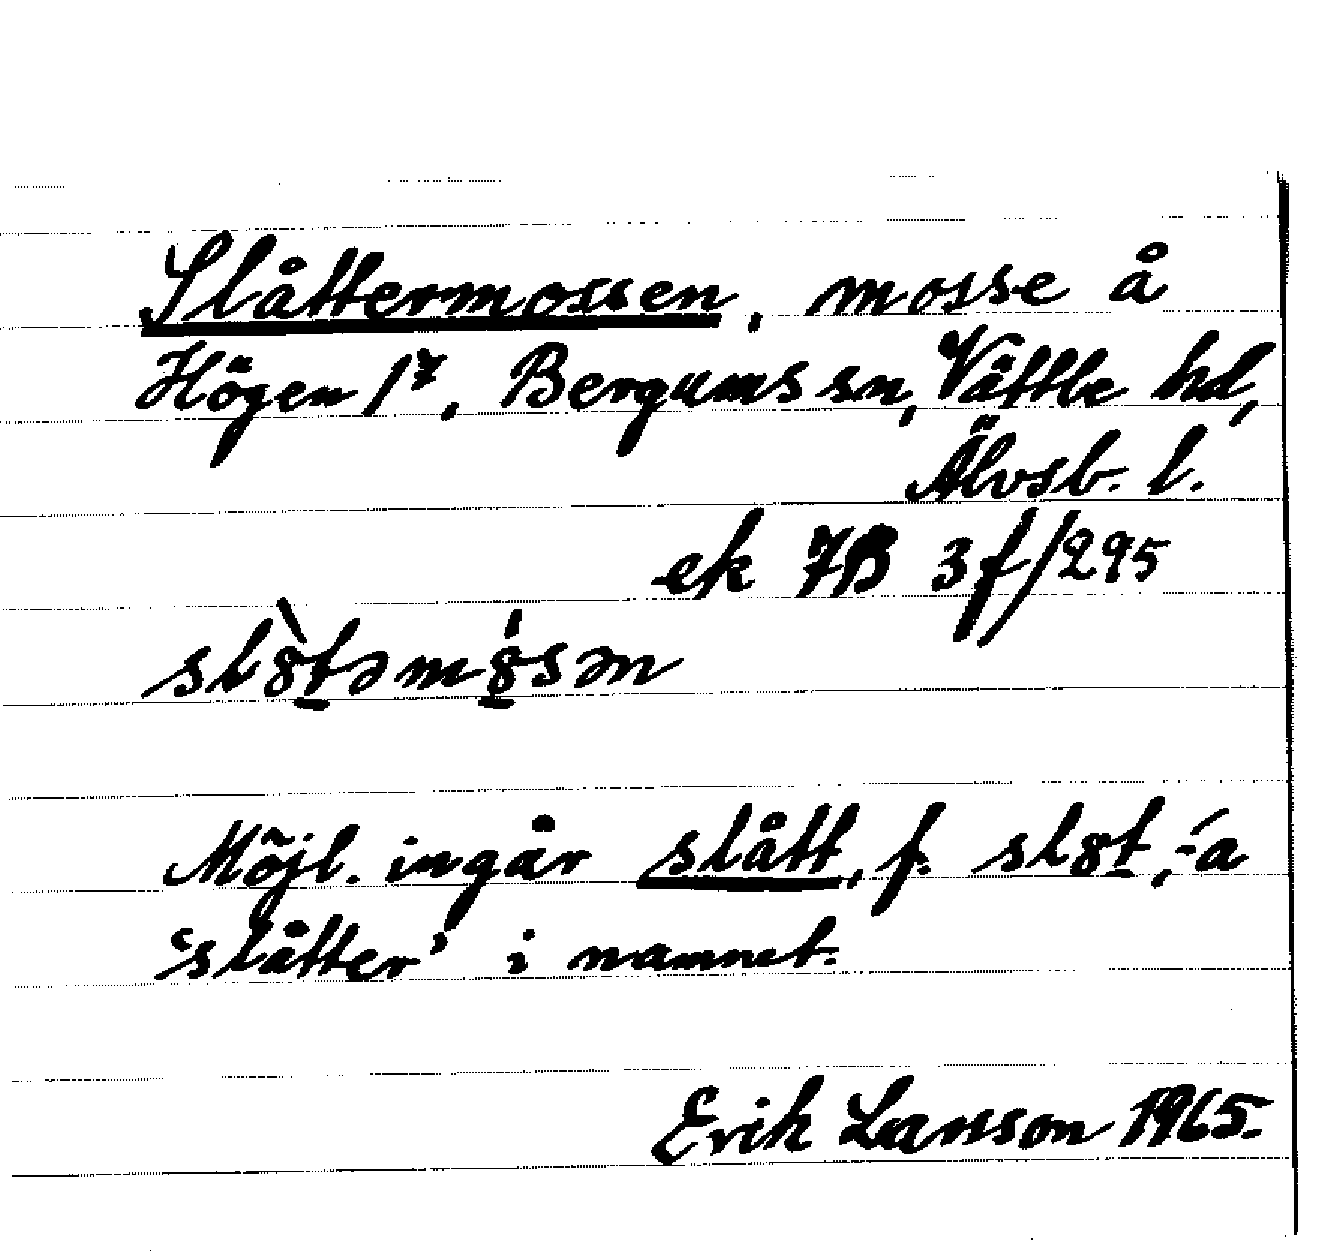 Slåttermossen, mosse å
Högen 1⁷, Bergums sn, Vättle hd,
Älvsb. l.
ek 7B 3f/295
slȣ̀t̠əmȣ̠́sən
Möjl. ingår slått, f. slȣt̠, -́a
'slåtter' i namnet.
Erik Larsson 1965.